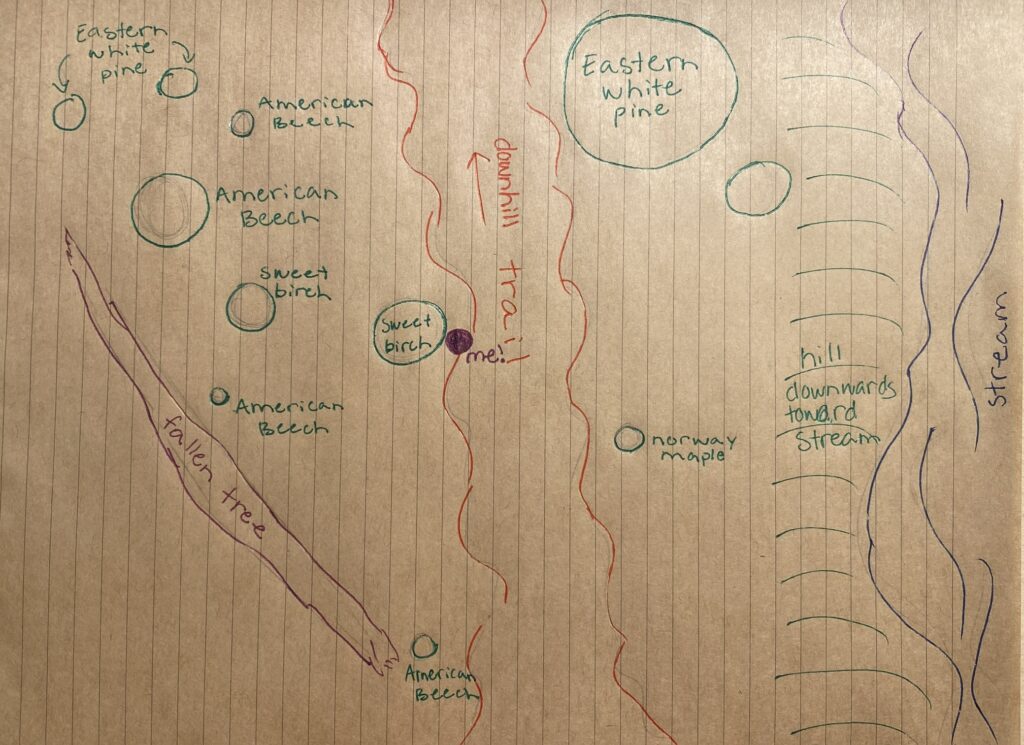 Eastern
white
pine
American
Beech
American
Beech
sweet
birch
American
Beech
fallen tree
American
Beech
sweet
birch
me!
downhill trail
Eastern
white
pine
norway
maple
hill
downwards
toward
stream
stream